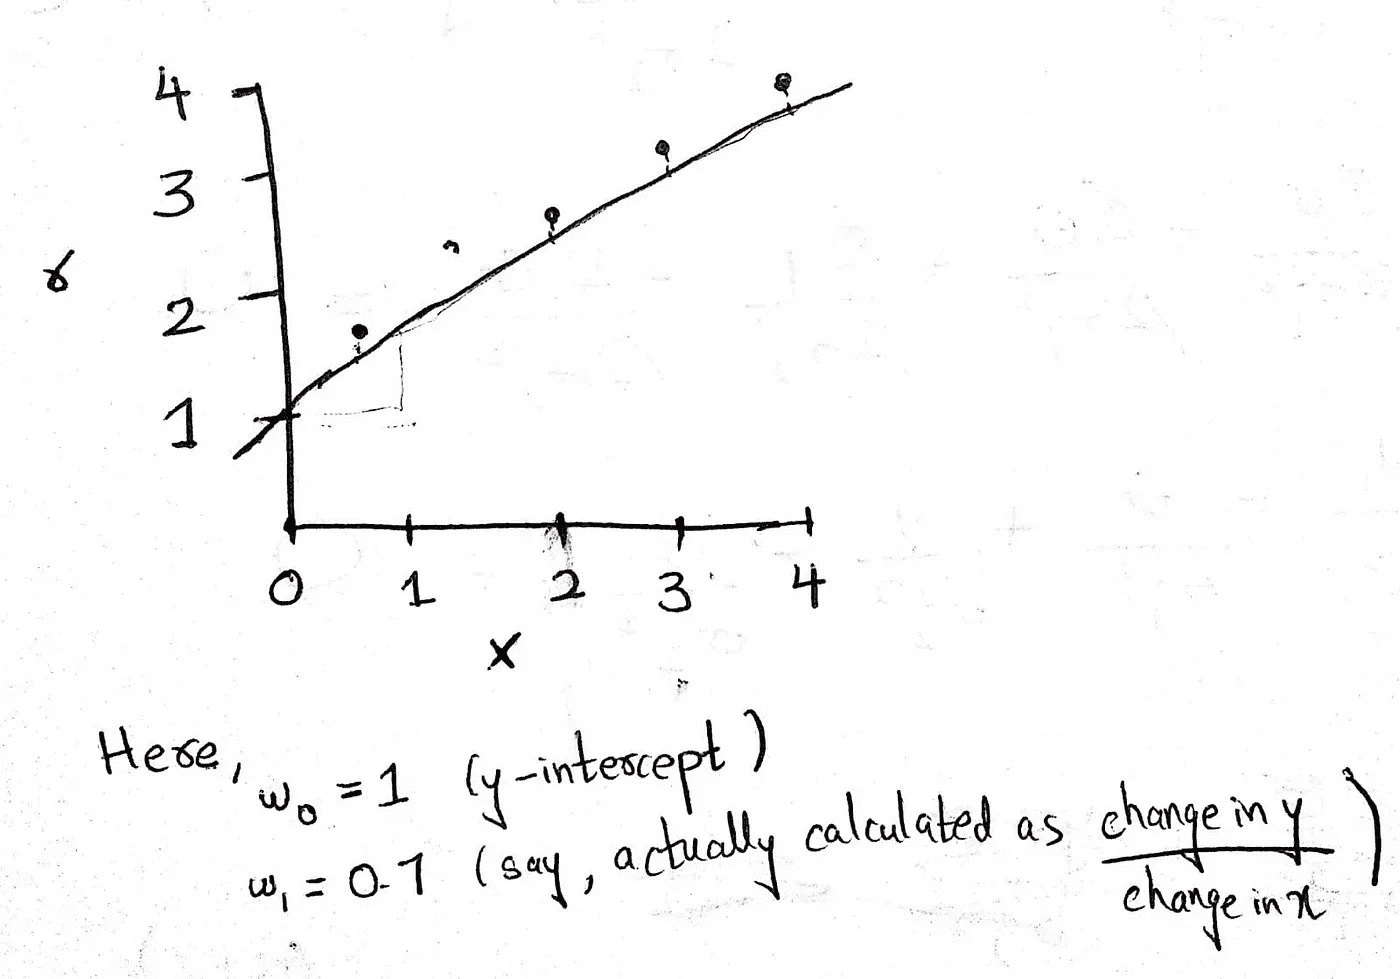 4
3
r
2
1
0 1 2 3 4
x
Here,
w₀ = 1 (y-intercept)
w₁ = 0.7 (say, actually calculated as change in y / change in x)